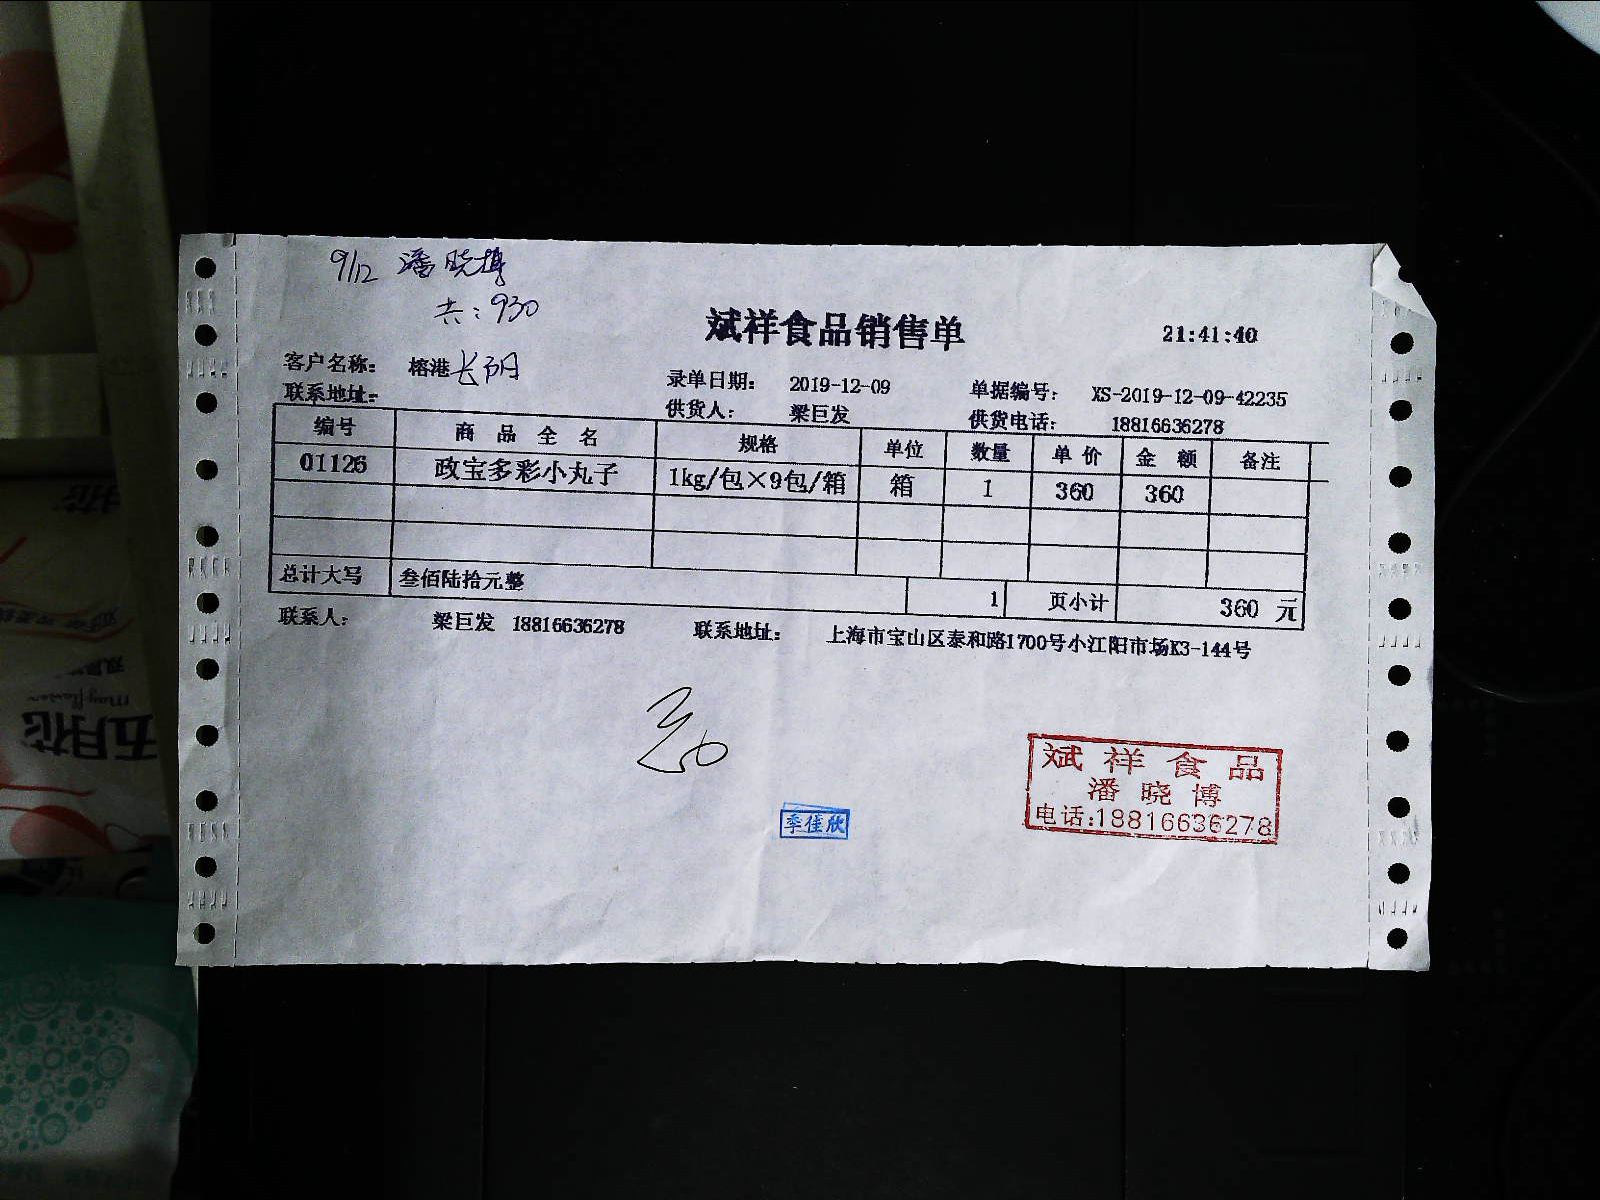 9/12 潘晓博
共：930
斌祥食品销售单
21:41:40
客户名称： 榕港长阴
录单日期： 2019-12-09
单据编号： XS-2019-12-09-42235
联系地址：
供货人： 梁巨发
供货电话： 18816636278
编号 商品全名 规格 单位 数量 单价 金额 备注
01126 政宝多彩小丸子 1kg/包×9包/箱 箱 1 360 360
总计大写 叁佰陆拾元整 1 页小计 360 元
联系人： 梁巨发 18816636278 联系地址： 上海市宝山区泰和路1700号小江阳市场K3-144号
季佳欣
斌祥食品
潘晓博
电话:18816636278
五月花
Mayflower